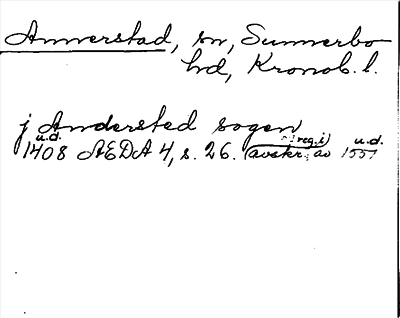 Annerstad, sn, Sunnerbo
hd, Kronob. l.
j Andersted sogen
u.d. reg. i) u.d.
1408 AEDA 4, s. 26. (avskr. av 1551